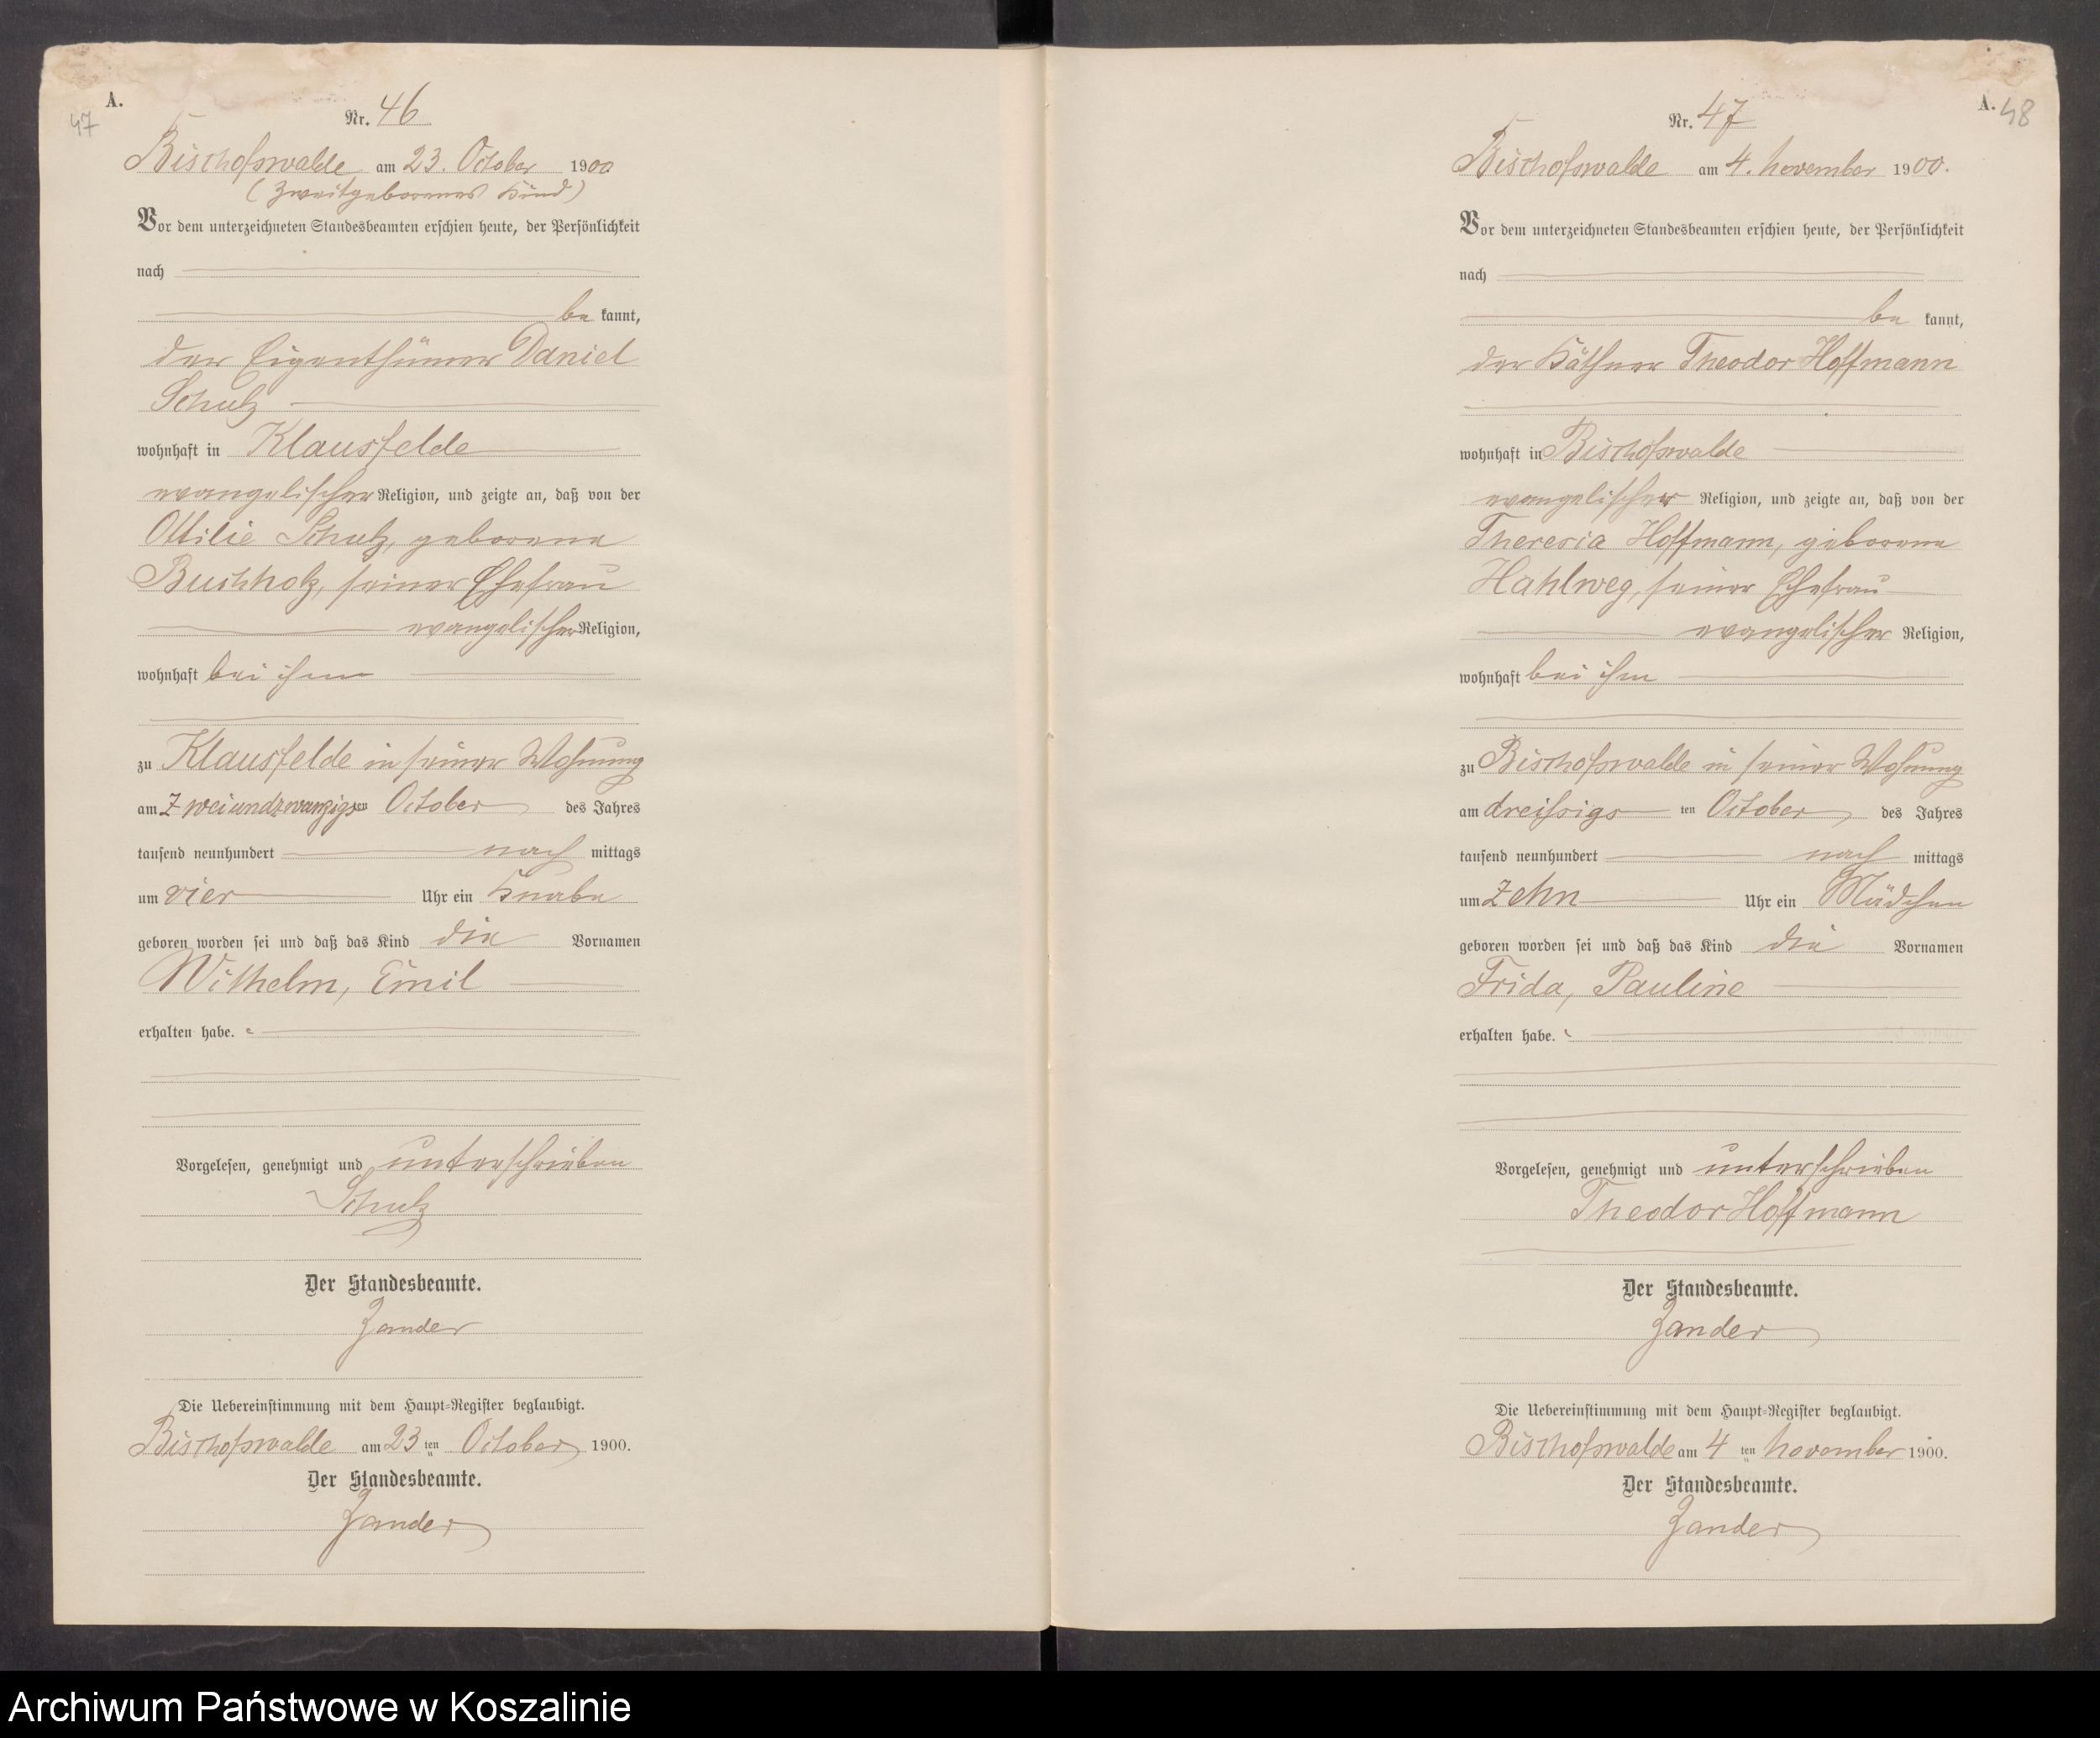 A.
47
Nr. 46
Bischofswalde am 23. October 1900
(Zweitgeborenes Kind)
Vor dem unterzeichneten Standesbeamten erschien heute, der Persönlichkeit
nach
be kannt,
der Eigenthümer Daniel
Schulz
wohnhaft in Klausfelde
evangelischer Religion, und zeigte an, daß von der
Ottilie Schulz, geborene
Buchholz, seiner Ehefrau
evangelischer Religion,
wohnhaft bei ihm
zu Klausfelde in seiner Wohnung
am Zweiundzwanzigsten October des Jahres
tausend neunhundert nach mittags
um vier Uhr ein Knabe
geboren worden sei und daß das Kind die Vornamen
Wilhelm, Emil
erhalten habe.
Vorgelesen, genehmigt und unterschrieben
Schulz
Der Standesbeamte.
Zander
Die Uebereinstimmung mit dem Haupt-Register beglaubigt.
Bischofswalde am 23 ten October 1900.
Der Standesbeamte.
Zander
A. 48
Nr. 47
Bischofswalde am 4. November 1900.
Vor dem unterzeichneten Standesbeamten erschien heute, der Persönlichkeit
nach
be kannt,
der Käthner Theodor Hoffmann
wohnhaft in Bischofswalde
evangelischer Religion, und zeigte an, daß von der
Theresia Hoffmann, geborene
Hahlweg, seiner Ehefrau
evangelischer Religion,
wohnhaft bei ihm
zu Bischofswalde in seiner Wohnung
am dreißigs ten October des Jahres
tausend neunhundert nach mittags
um Zehn Uhr ein Mädchen
geboren worden sei und daß das Kind die Vornamen
Frida, Pauline
erhalten habe.
Vorgelesen, genehmigt und unterschrieben
Theodor Hoffmann
Der Standesbeamte.
Zander
Die Uebereinstimmung mit dem Haupt-Register beglaubigt.
Bischofswalde am 4 ten November 1900.
Der Standesbeamte.
Zander
Archiwum Państwowe w Koszalinie